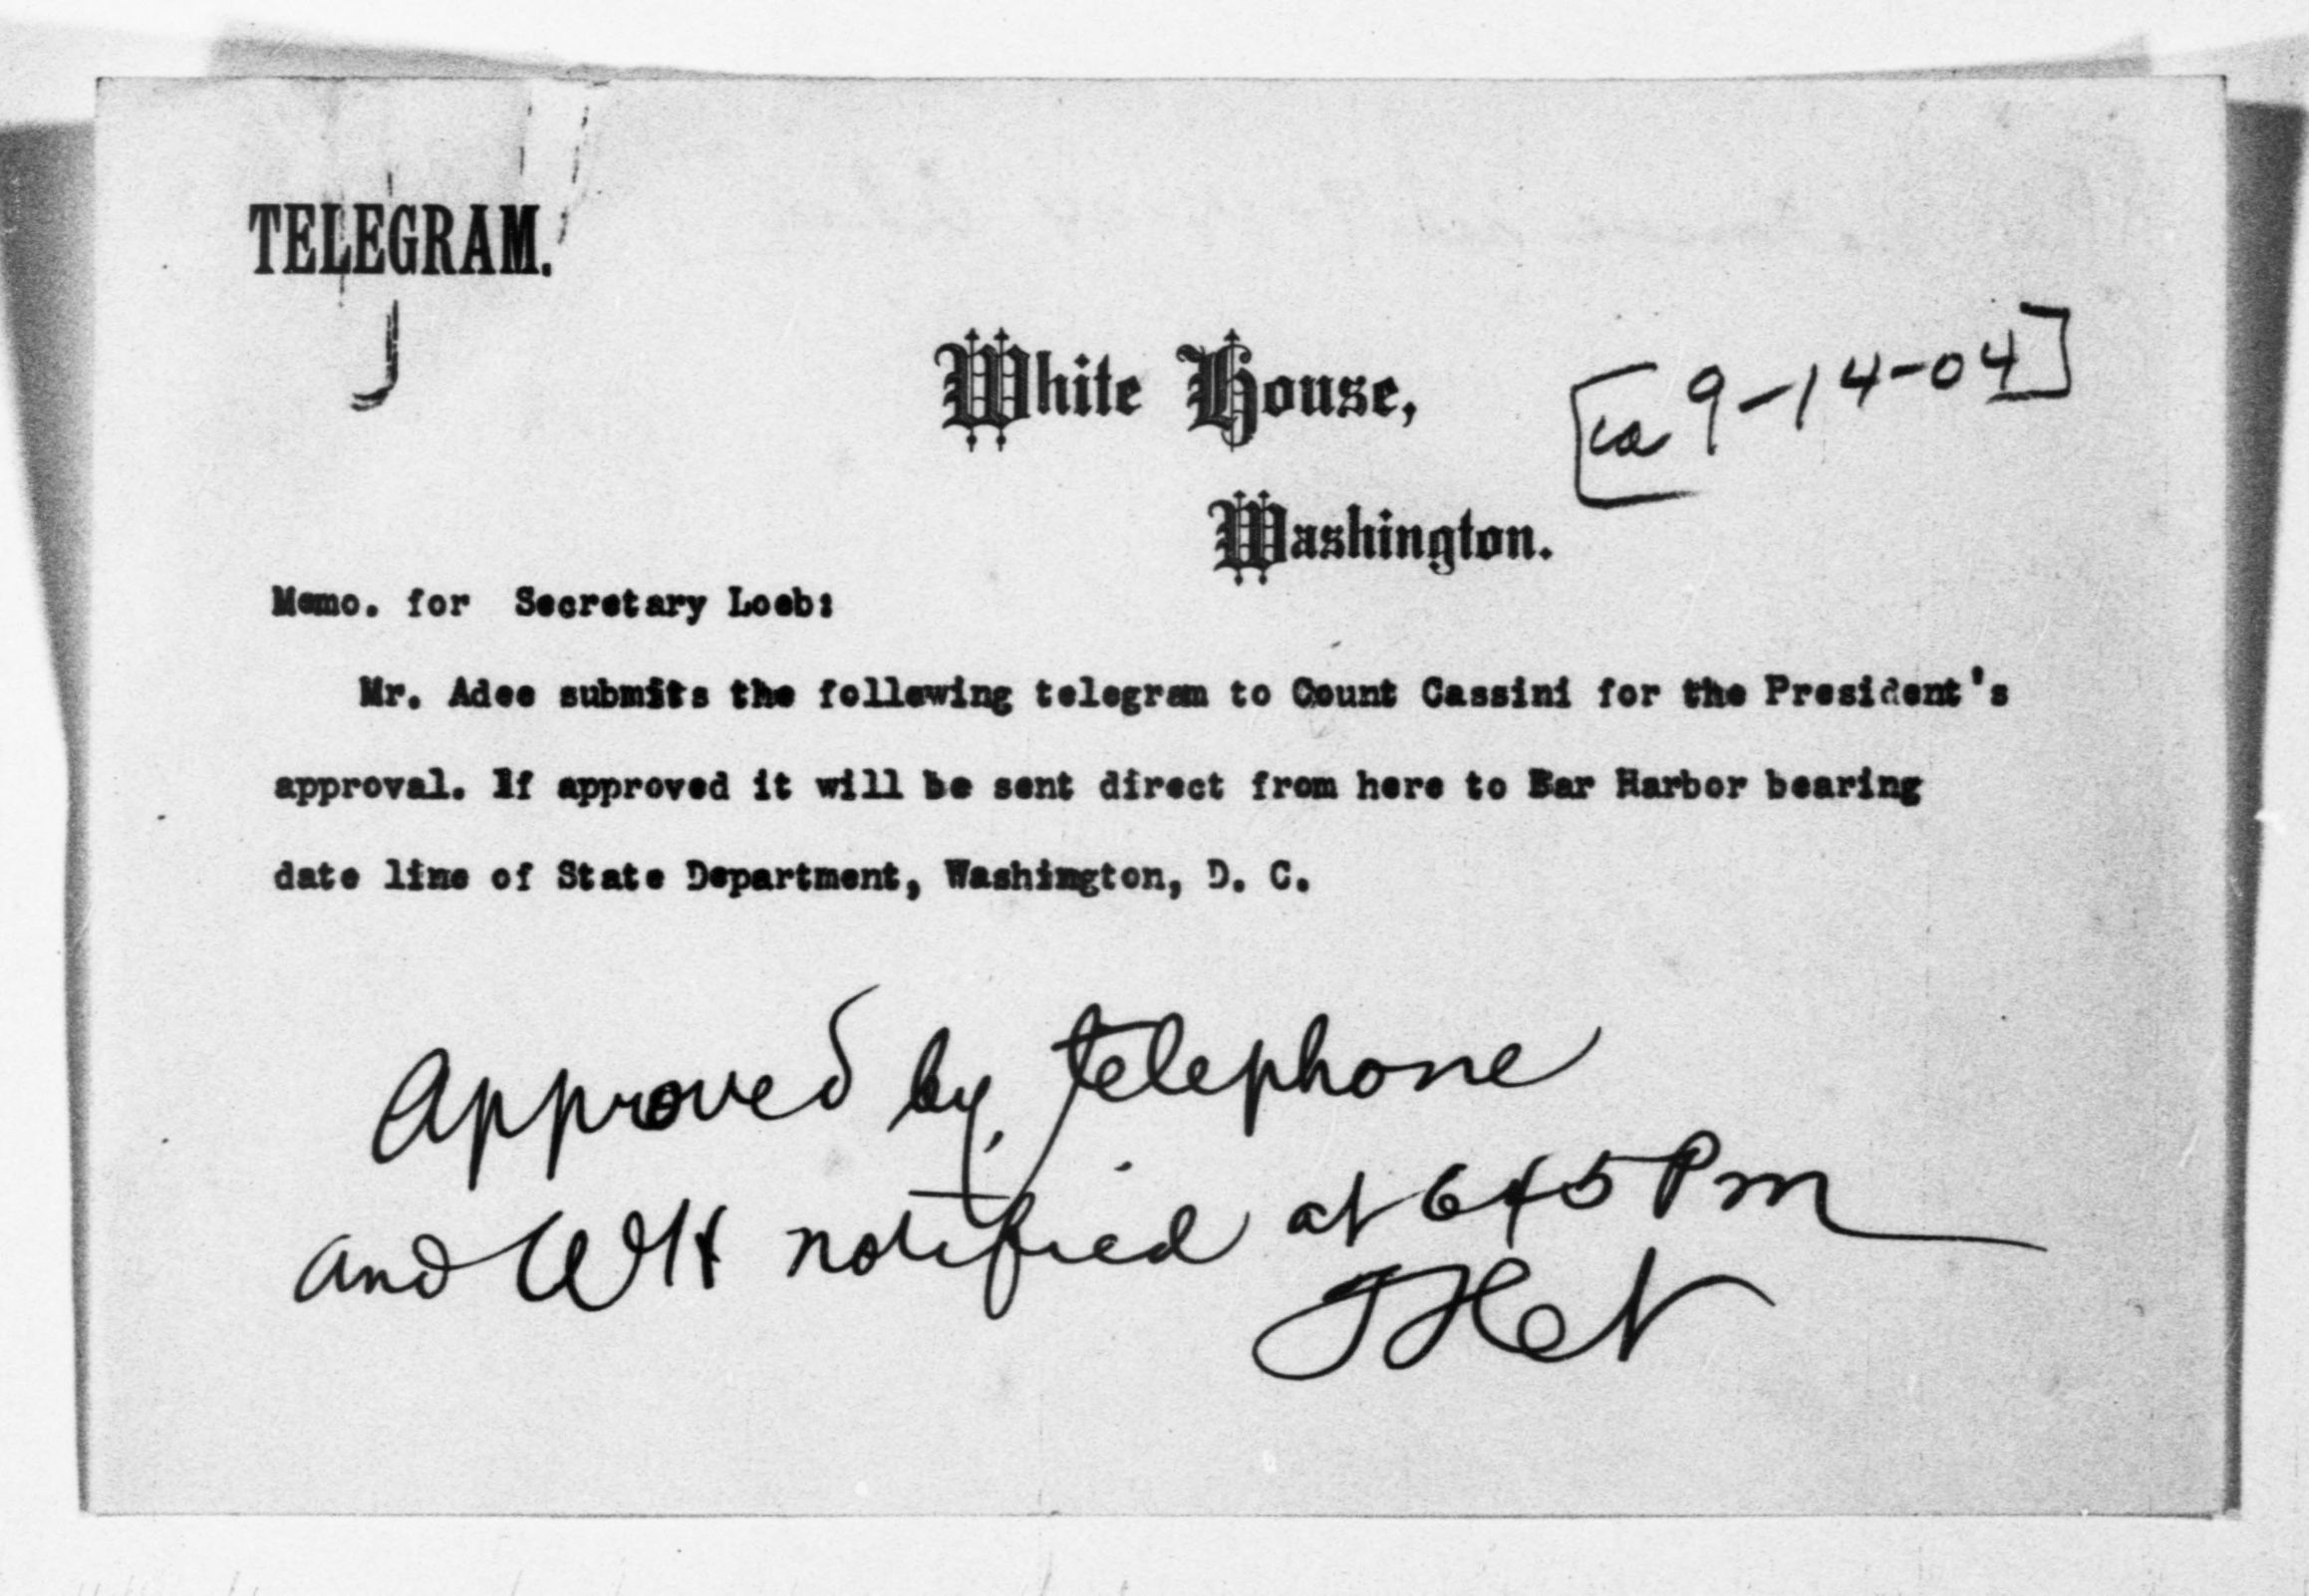 TELEGRAM.
White House,
[ca 9-14-04]
Washington.
Memo. for Secretary Loeb:
Mr. Adee submits the following telegram to Count Cassini for the President's
approval. If approved it will be sent direct from here to Bar Harbor bearing
date line of State Department, Washington, D. C.
Approved by telephone
and WH notified at 645 Pm